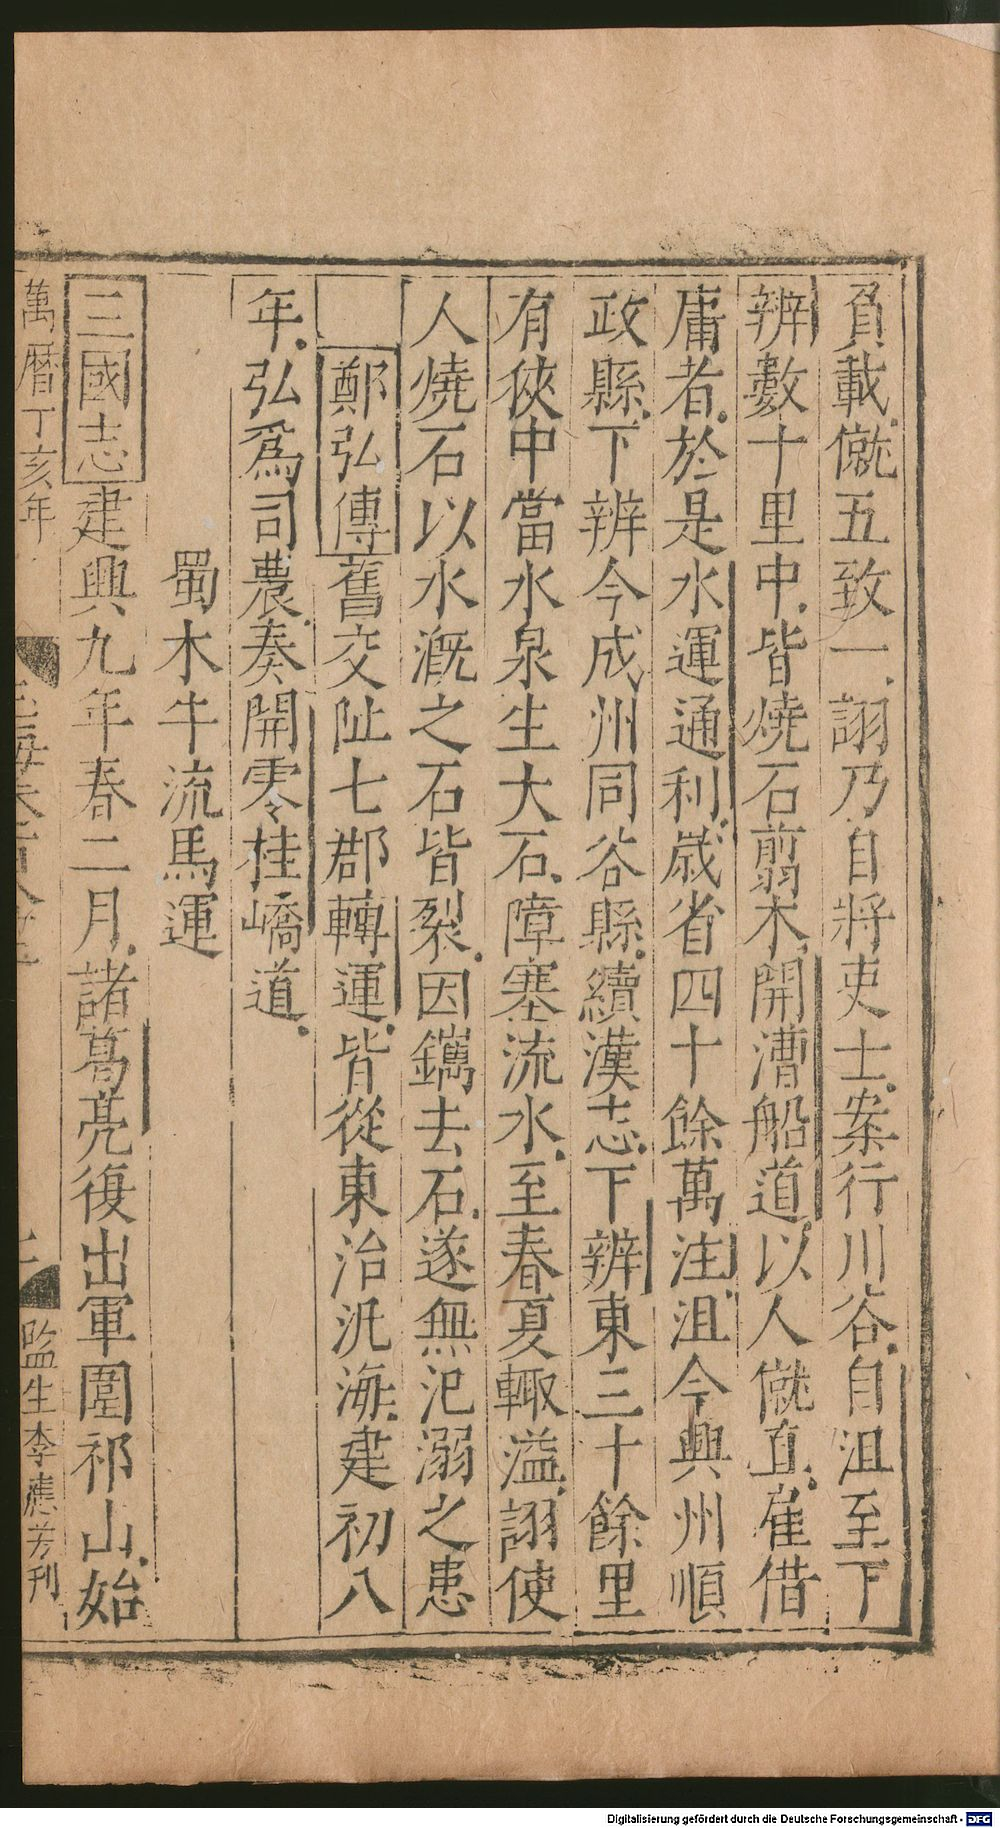 負載僦五致一詡乃自將吏士案行川谷自沮至下
辨數十里中皆燒石翦木開漕船道以人僦直雇借
庸者於是水運通利歲省四十餘萬注沮今興州順
政縣下辨今成州同谷縣續漢志下辨東三十餘里
有狹中當水泉生大石障塞流水至春夏輙溢詡使
人燒石以水漑之石皆裂因鐫去石遂無汜溺之患
鄭弘傳舊交阯七郡轉運皆從東治汎海建初八
年弘爲司農奏開零桂嶠道
蜀木牛流馬運
三國志建興九年春二月諸葛亮復出軍圍祁山始
萬曆丁亥年
監生李應芳刊
Digitalisierung gefördert durch die Deutsche Forschungsgemeinschaft - DFG